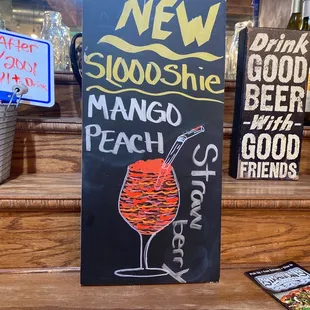 After
21+ Drink
NEW
SLOOOShie
MANGO
PEACH
Straw
berry
Drink
GOOD
BEER
-With-
GOOD
FRIENDS.